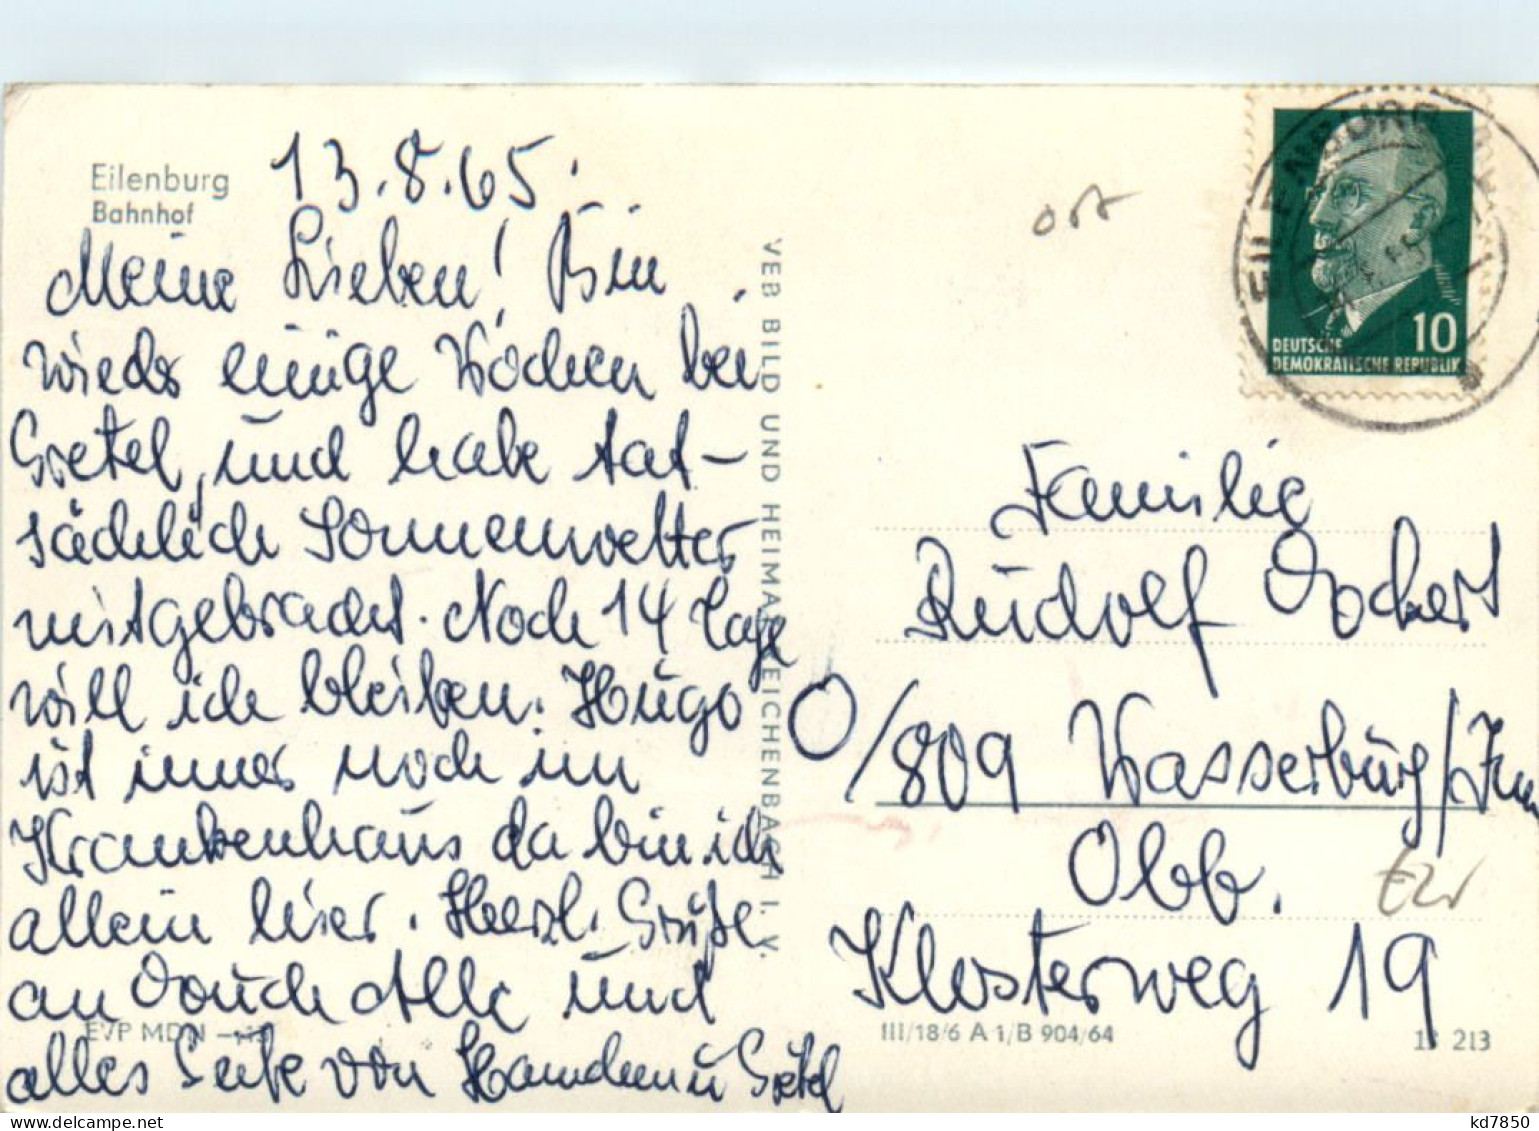 Eilenburg
Bahnhof
13.8.65.
Meine Lieben! Bin
wieder einige Wochen bei
Gretel, und habe tat-
sächlich Sonnenwetter
mitgebracht. Noch 14 Tage
will ich bleiben. Hugo
ist immer noch im
Krankenhaus da bin ich
allein hier. Herzl. Grüße
an Euch Alle und
alles Gute von
u Gretel
EVP MDN
VEB BILD UND HEIMAT REICHENBACH I. V.
EILENBURG
DEUTSCHE
DEMOKRATISCHE REPUBLIK
10
Familie
Rudolf
O/809 Wasserburg/Inn
Obb.
Klosterweg 19
III/18/6 A 1/B 904/64
213
kd7850